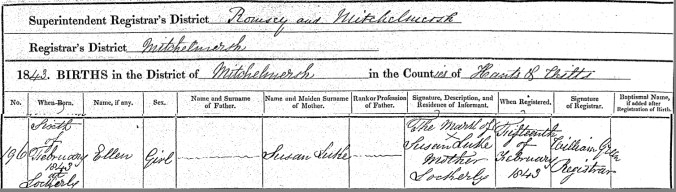 Superintendent Registrar's District Romsey and Mitchelmersh
Registrar's District Mitchelmersh
1843. BIRTHS in the District of Mitchelmersh in the Counties of Hants & Wilts
No. When Born. Name, if any. Sex. Name and Surname of Father. Name and Maiden Surname of Mother. Rank or Profession of Father. Signature, Description, and Residence of Informant. When Registered. Signature of Registrar. Baptismal Name, if added after Registration of Birth.
196 Sixth of February 1843 at Lockerly Ellen Girl Susan Luke The Mark of Susan Luke Mother Lockerly Fifteenth of February 1843 William Registrar